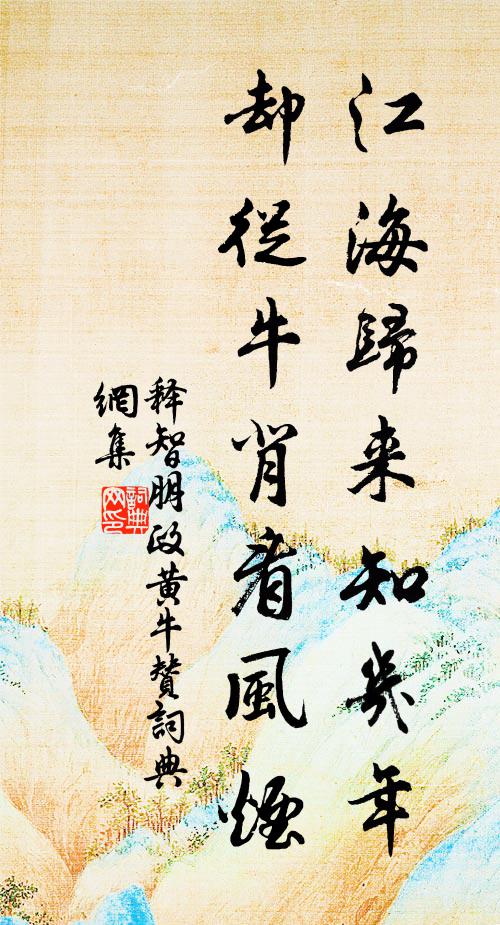 江海歸来知幾年
却從牛背看風煙
释智朋政黄牛赞詞典
網集
詞典
网印